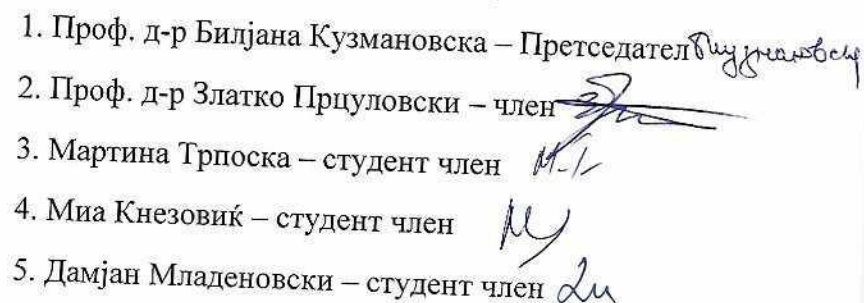 1. Проф. д-р Билјана Кузмановска – Претседател
2. Проф. д-р Златко Прцуловски – член
3. Мартина Трпоска – студент член
4. Миа Кнезовиќ – студент член
5. Дамјан Младеновски – студент член